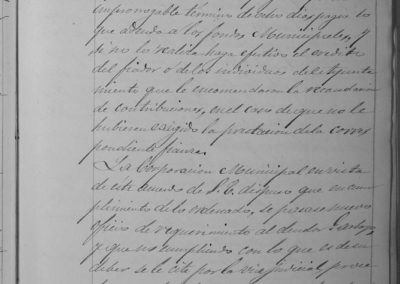 improrrogable término de otros dias pague lo
que adeuda a los fondos Municipales, y
si no lo verifica haga efectivo el credito
del fiador o de los individuos del Ayunta
miento que le encomendaron la recaudacion
de contribuciones, en el caso de que no le
hubieren exigido la prestacion de la corres
pondiente fianza.
La Corporacion Municipal en vista
de este acuerdo de S. E. dispuso que en cum
plimiento de lo ordenado, se pasase nuevo
oficio de requerimiento al deudor
y que no cumpliendo con lo que es de su
deber se le cite por la via judicial,